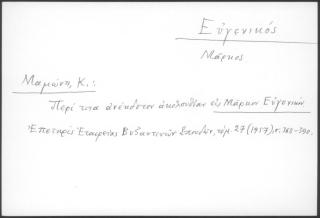 Εὐγενικός
Μάρκος
Μαμώνη, Κ.:
Περί τινα ἀνέκδοτον ἀκολουθίαν εἰς Μάρκον Εὐγενικόν
Ἐπετηρὶς Ἑταιρείας Βυζαντινῶν Σπουδῶν, τόμ. 27 (1957), σ. 368-390.